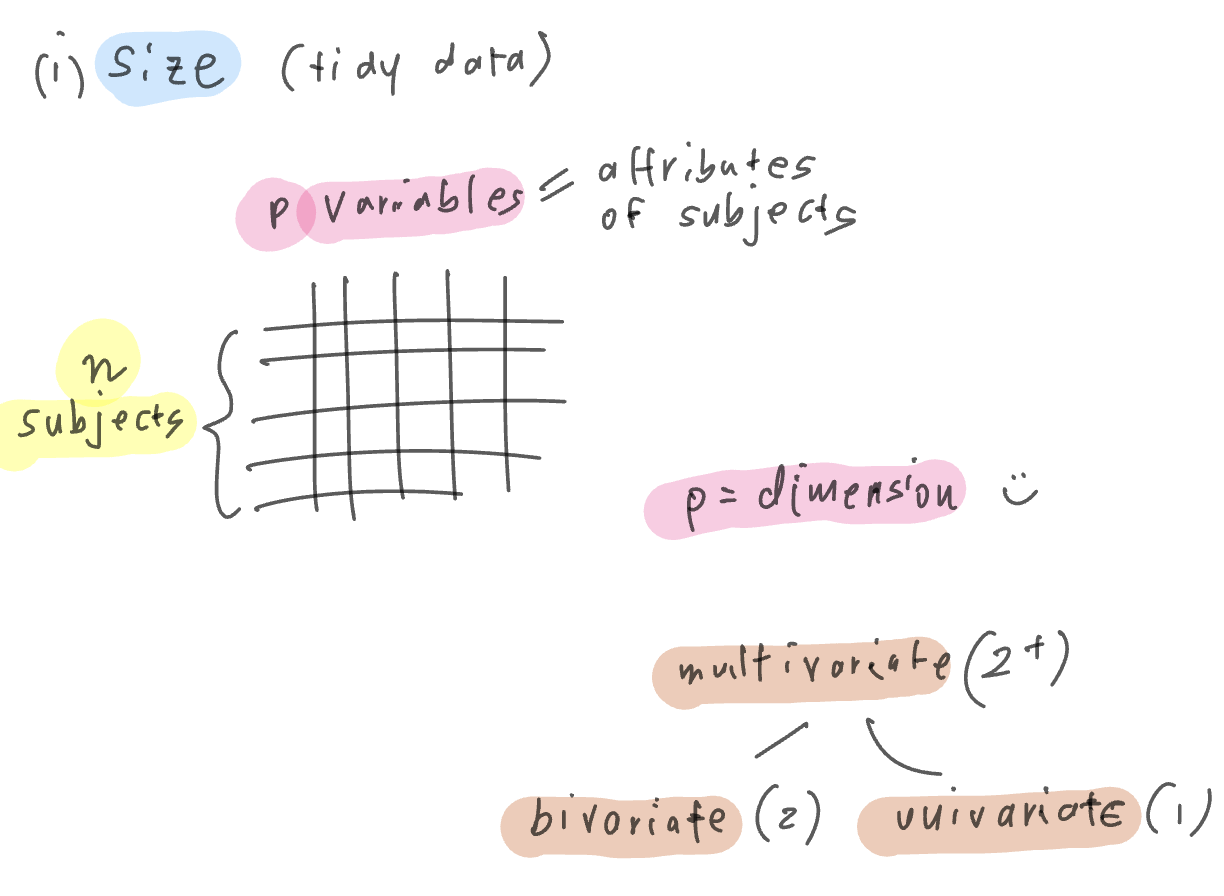 (i) size (tidy data)
p variables = attributes
of subjects
n
subjects
p = dimension
multivariate (2+)
bivariate (2) univariate (1)